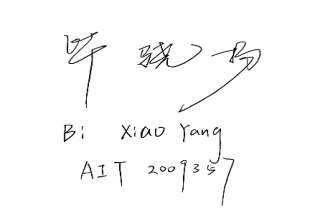 毕 骁
Bi Xiao Yang
AIT 2009357